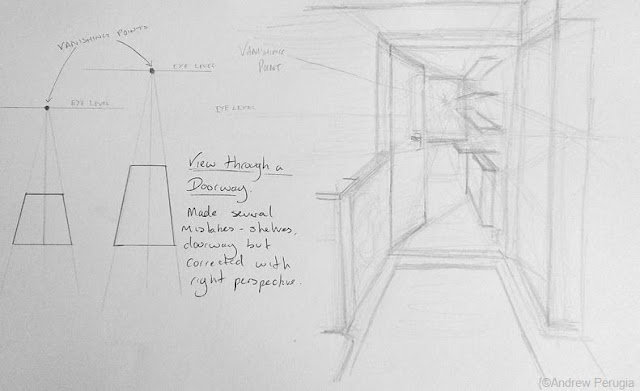 VANISHING POINTS
EYE LEVEL
EYE LEVEL
VANISHING
POINT
EYE LEVEL
View through a
Doorway
Made several
mistakes - shelves,
doorway but
corrected with
right perspective.
©Andrew Perugia